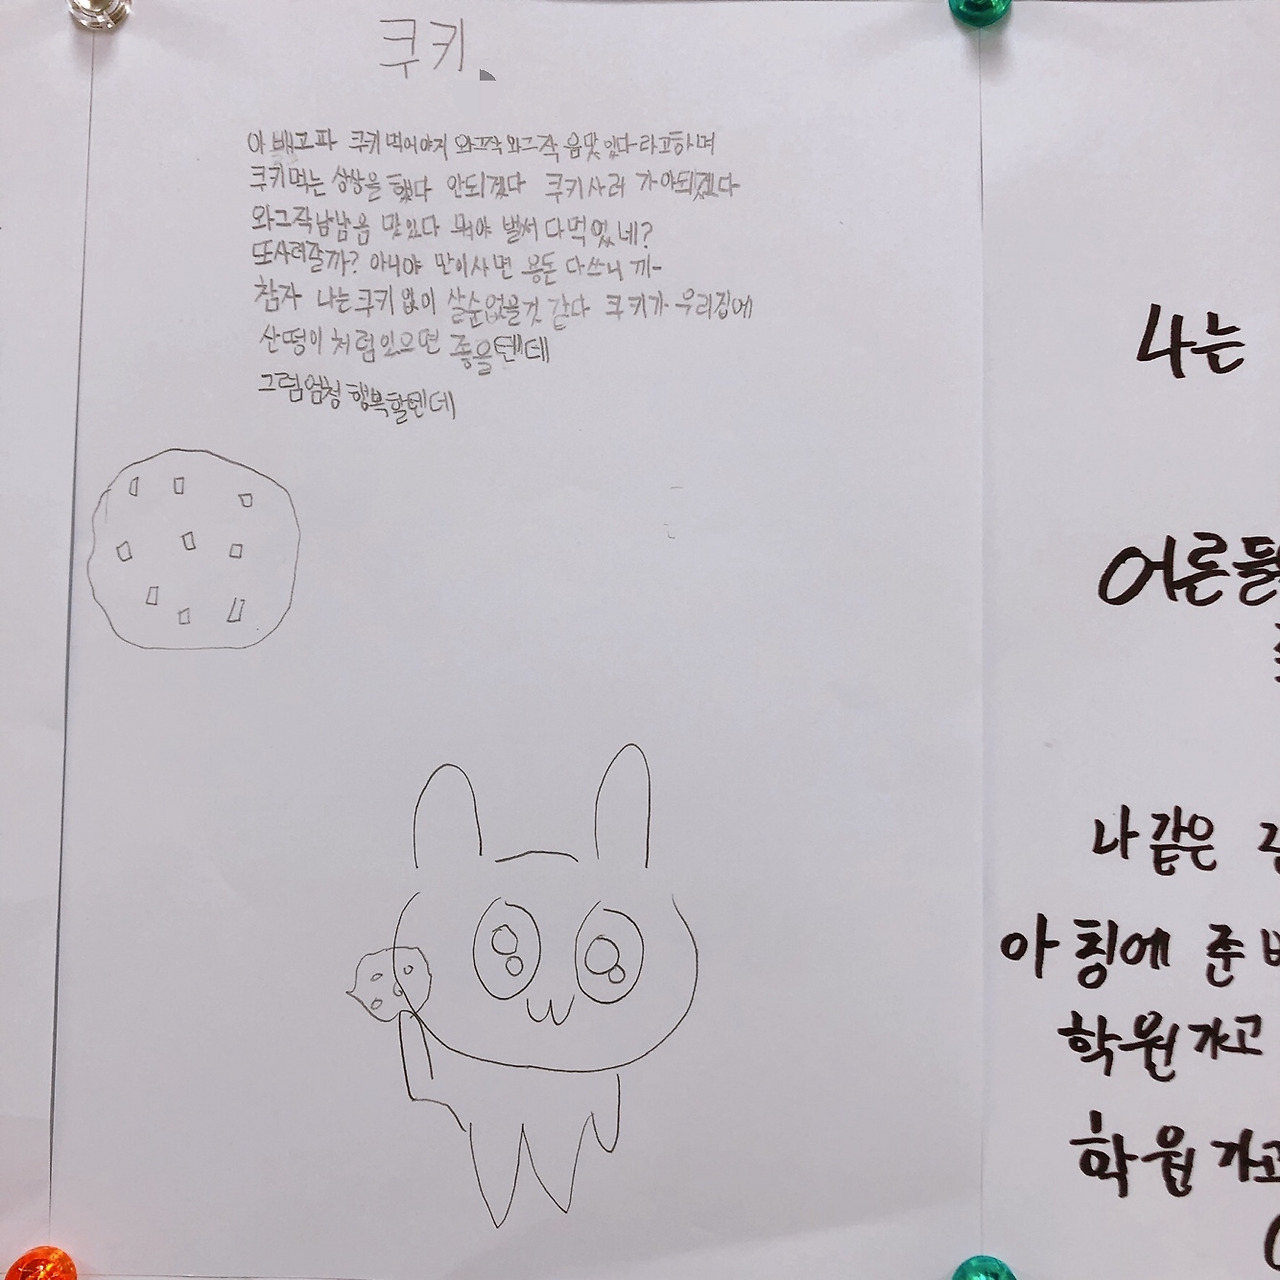 쿠키
아 배고파 쿠키 먹어야지 와그작 와그작 음 맛있다 라고하며
쿠키먹는 상상을 했다 안되겠다 쿠키사러 가야되겠다
와그작남남음 맛있다 뭐야 벌써 다먹었네?
또사러갈까? 아니야 만이사면 용돈 다쓰니 까-
참자 나는 쿠키 없이 살순없을것 같다 쿠키가 우리집에
산떵이 처럼있으면 좋을텐데
그럼엄청 행복할텐데
나는
어른들
나 같은
아 침에 준 비
학원 가고
학원 가고